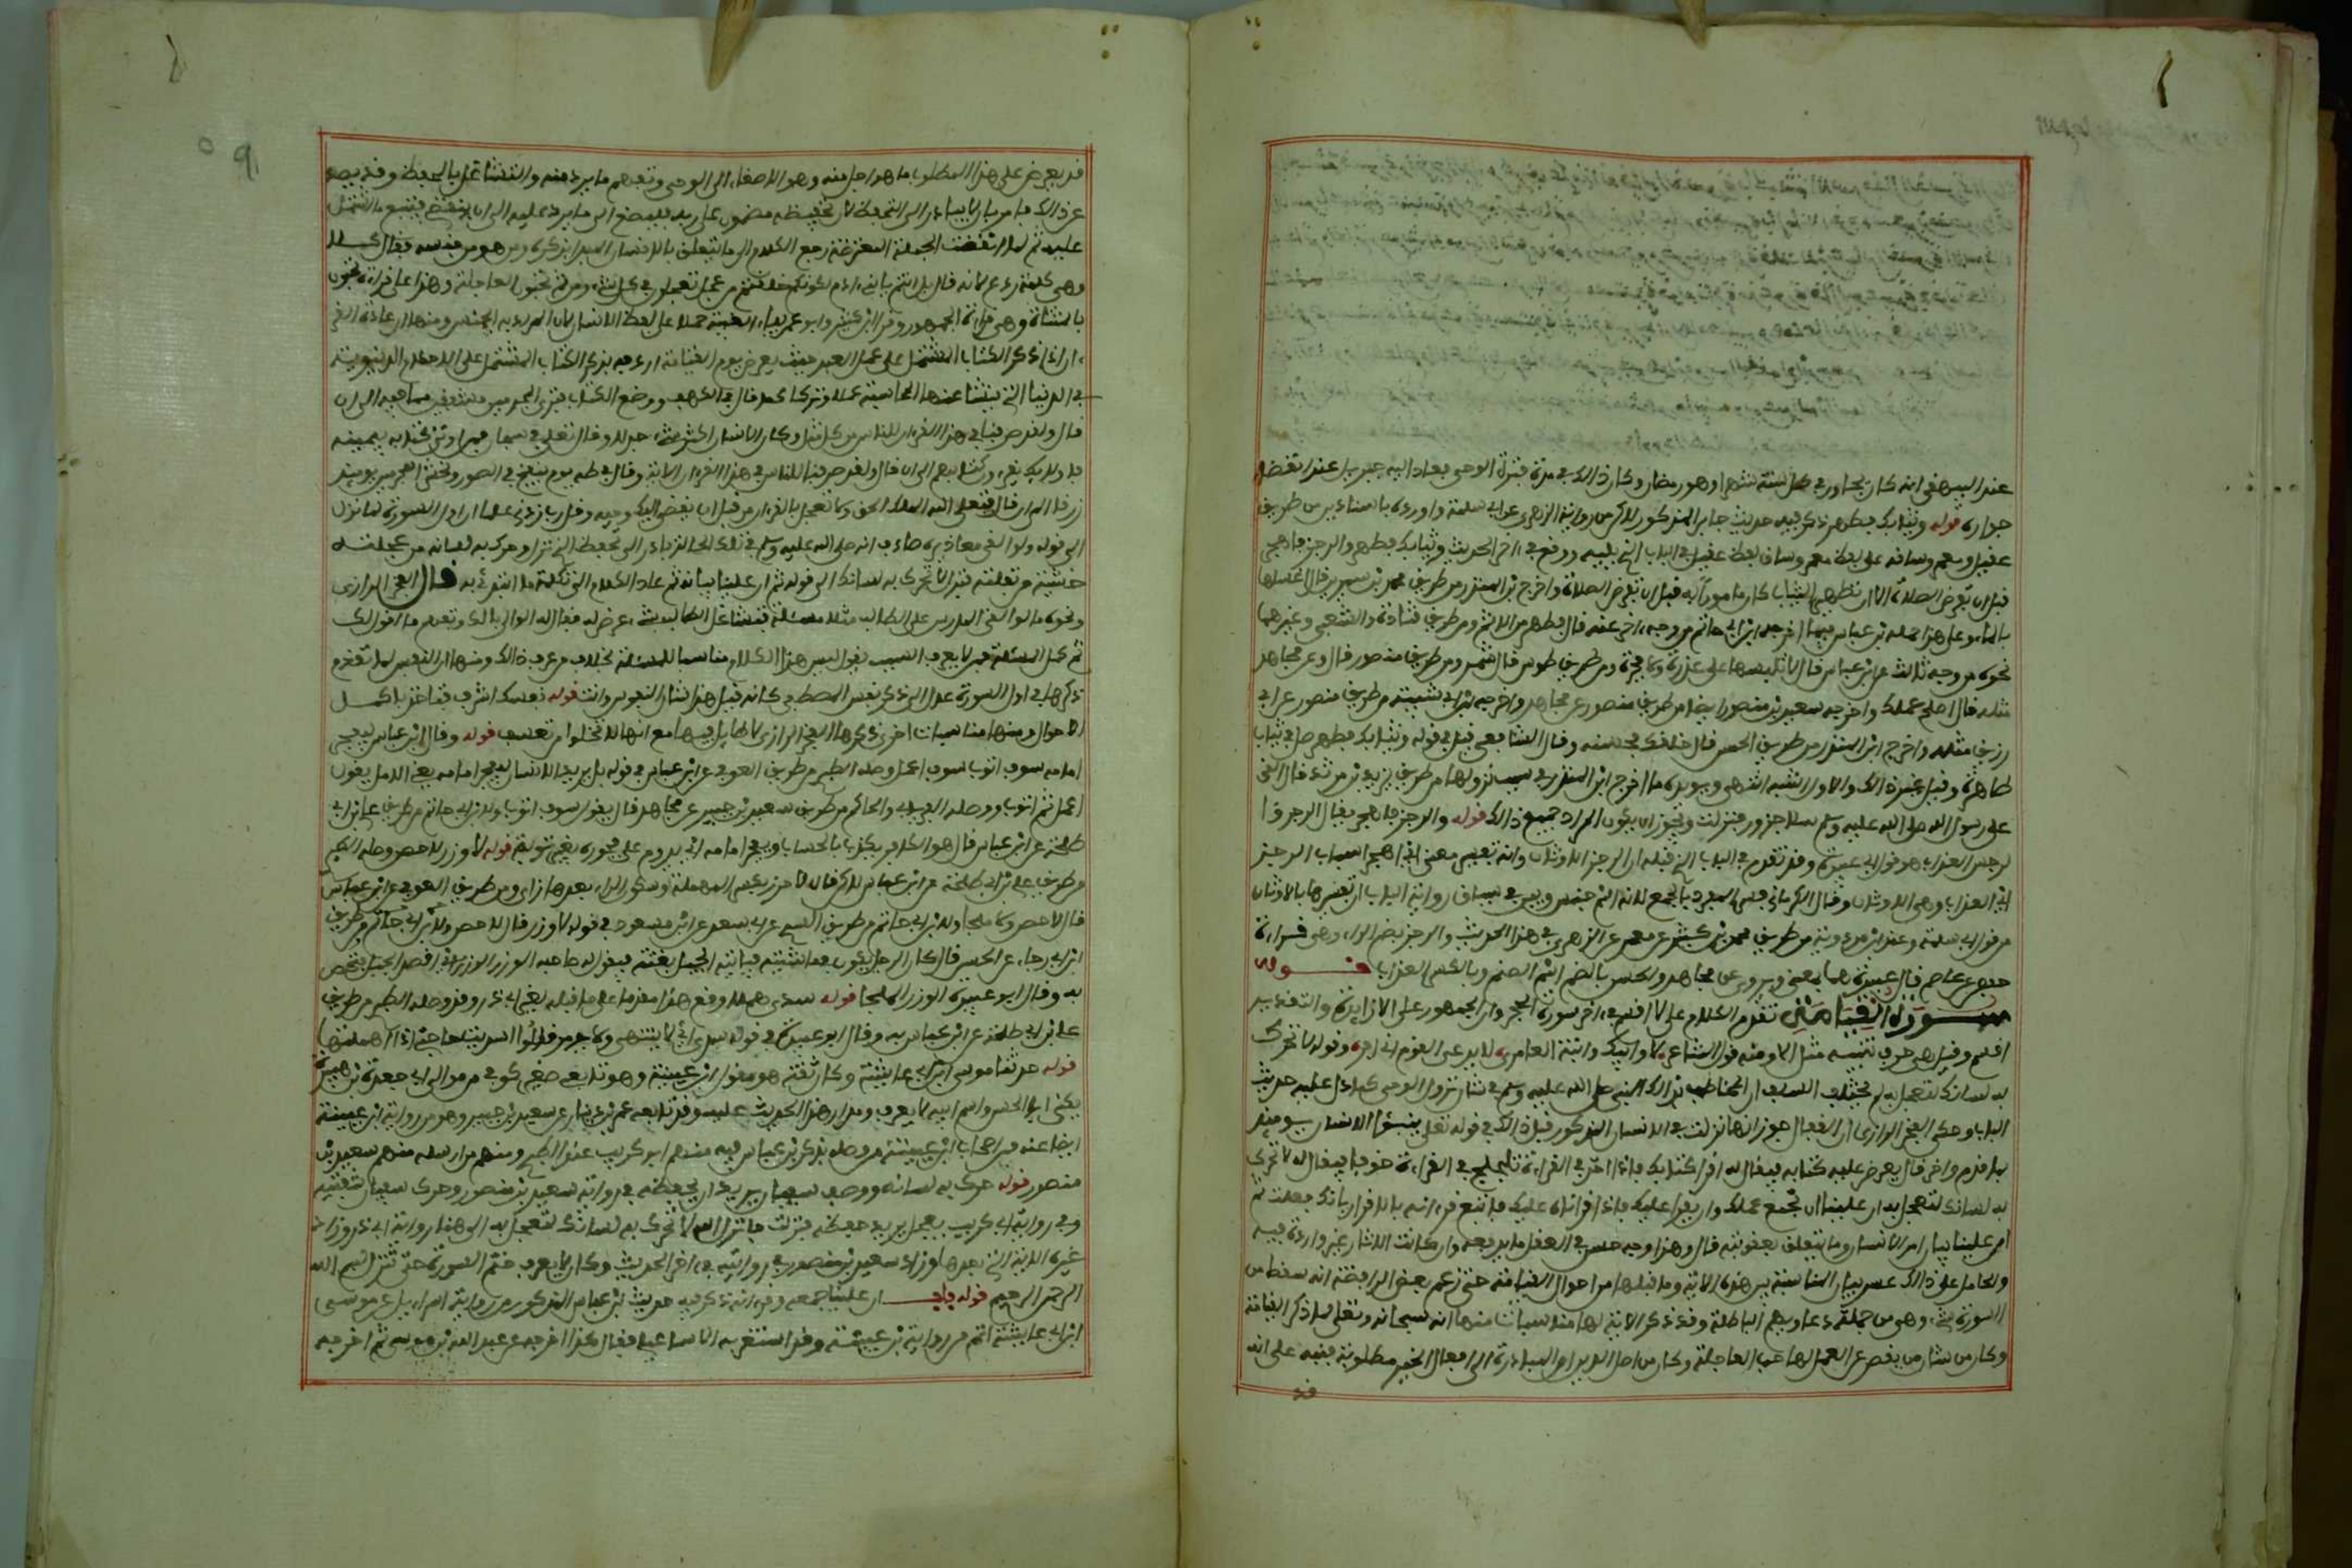 عند البيهقي انه كان يجاور في كل سنة شهرا وهو رمضان وكان ذالك في مدة فترة الوحي فعاد اليه جبريل عند انقضا
جواره قوله وثيابك فطهر ذكر فيه حديث جابر المذكور لاكن من رواية الزهري عن ابي سلمة واورده باسنادين من طريق
عقيل ومعمر وساقه على لفظ معمر وساق لفظ عقيل في الباب الذي يليه ووقع في ءاخر الحديث وثيابك فطهر والرجز فاهجر
قبل ان تفرض الصلاة الا ان تطهير الثياب كان مامورا به قبل ان تفرض الصلاة واخرج ابن المنذر من طريق محمد بن سيرين قال اغسلها
بالماء وعلى هذا حمله ابن عباس فيما اخرجه ابن ابي حاتم من وجه ءاخر عنه قال فطهر من الاثم ومن طريق قتادة والشعبي وغيرهما
نحوه من وجه ثالث عن ابن عباس قال لا تلبسها على غدرة ولا فجرة ومن طريق طاوس قال شمر ومن طريق منصور قال وعن مجاهد
مثله قال اصلح عملك واخرجه سعيد بن منصور ايضا من طريق منصور عن مجاهد واخرجه ابن ابي شيبة من طريق منصور عن ابي
رزين مثله واخرج ابن المنذر من طريق الحسن قال خلقك فحسنه وقال الشافعي قيل في قوله وثيابك فطهر صل في ثياب
طاهرة وقيل غير ذالك والاول اشبه انتهى ويويده ما اخرج ابن المنذر في سبب نزولها من طريق يزيد بن مرثد قال القي
على رسول الله صلى الله عليه وسلم سلا جزور فنزلت ويجوز ان يكون المراد جميع ذالك قوله والرجز فاهجر يقال الرجز وا
لرجس العذاب هو قول ابي عبيدة وقد تقدم في الباب الذي قبله ان الرجز الاوثان وانه تفسير معنى اي اهجر اسباب الرجز
اي العذاب وهي الاوثان وقال الكرماني فسر المفرد بالجمع لانه اسم جنس وبين في سياق رواية الباب ان تفسيرها بالاوثان
من قول ابي سلمة وعند ابن مردوية من طريق محمد بن كثير عن معمر عن الزهري في هذا الحديث والرجز بضم الراء وهي قراءة
حفص عن عاصم قال ابو عبيدة هما بمعنى ويروى عن مجاهد والحسن بالضم اسم الصنم وبالكسر العذاب قوله
سورة القيامة تقدم الكلام على لا اقسم في ءاخر سورة الحجر وان الجمهور على ان لا زايدة والتقدير
اقسم وقيل هي حرف تنبيه مثل الا ومنه قول الشاعر لا وابيك وابنة العامري لا يدعي القوم اني افر قوله لا تحرك
به لسانك لتعجل به لم يختلف السلف ان المخاطب بذالك النبي صلى الله عليه وسلم في شان نزول الوحي كما دل عليه حديث
الباب وحكى الفخر الرازي ان القفال جوز انها نزلت في الانسان المذكور قبل ذالك في قوله تعلى ينبؤا الانسان يومئذ
بما قدم واخر قال يعرض عليه كتابه فيقال له اقرأ كتابك فاذا اخذ في القراءة تلجلج في القراءة خوفا فيقال له لا تحرك
به لسانك لتعجل به ان علينا ان نجمع عملك وان نقرأ عليك فاذا قرأناه عليك فاتبع قرءانه بالاقرار بانك فعلت ثم
ان علينا بيان امر الانسان وما يتعلق بعقوبته قال وهذا وجه حسن في العقل ما يدفعه وان كانت الاثار غير واردة فيه
والحامل على ذالك عسر بيان المناسبة بين هذه الاية وما قبلها من احوال القيامة حتى زعم بعض الرافضة انه سقط من
السورة شيء وهي من جملة دعاويهم الباطلة وقد ذكر الايمة لها مناسبات منها انه سبحانه وتعلى لما ذكر القيامة
وكان من شان من يقصر عن العمل لها حب العاجلة وكان من اصل الدين ان المبادرة الى افعال الخير مطلوبة فنبه على انه
قد
قد يعرض على هذا المطلوب ما هو اجل منه وهو الاصغاء الى الوحي وتفهم ما يرد منه والتشاغل بالحفظ وقد يصد
عن ذالك فامر بان لا يبادر الى التحفظ لان تحفيظه مضمون على ربه فليصغ الى ما يرد عليه الى ان ينقضي فيتبع ما اشتمل
عليه ثم لما انقضت الجملة المعترضة رجع الكلام الى ما يتعلق بالانسان المبدا بذكره ومن هو من جنسه فقال كلا
وهي كلمة ردع كانه قال بل انتم يا بني ءادم لكونكم خلقتم من عجل تعجلون في كل شيء ومن ثم تحبون العاجلة وهذا على قراءة تحبون
بالمثناة وهي قراءة الجمهور وقرأ ابن كثير وابو عمرو بياء الغيبة حملا على لفظ الانسان لان المراد به الجنس ومنها ان عادة القر
ءان اذا ذكر الكتاب المشتمل على عمل العبد حيث يعرض يوم القيامة اردفه بذكر الكتاب المشتمل على الاحكام الدينية
في الدنيا التي ينشا عنها المحاسبة عملا وتركا كما قال في الكهف ووضع الكتاب فترى المجرمين مشفقين مما فيه الى ان
قال ولقد صرفنا في هذا القرءان للناس من كل مثل وكان الانسان اكثر شيء جدلا وقال تعلى في سبحان فمن اوتي كتابه بيمينه
فاولايك يقرءون كتابهم الى ان قال ولقد صرفنا للناس في هذا القرءان الاية وقال في طه يوم ينفخ في الصور ونحشر المجرمين يومئذ
زرقا الى ان قال فتعلى الله الملك الحق ولا تعجل بالقرءان من قبل ان يقضى اليك وحيه وقل رب زدني علما ان اول السورة لما نزل
الى قوله ولو القى معاذيره صادف انه صلى الله عليه وسلم في تلك الحالة بادر الى تحفظ الذي نزل وحرك به لسانه من عجلته
خشية من تفلته فنزل لا تحرك به لسانك الى قوله ثم ان علينا بيانه ثم عاد الكلام الى تكلمة ما ابتدئ به قال الفخر الرازي
ونحوه ما لو القى المدرس على الطالب مثلا مسئلة فتشاغل الطالب بشيء عرض له فقال له القي الي بالك وتفهم ما اقول لك
ثم كمل المسئلة فمن لا يعرف السبب يقول ليس هذا الكلام مناسبا للمسئلة بخلاف من عرف ذالك ومنها ان النفس لما تقدم
ذكرها في اول السورة عدل الى ذكر نفس المصطفى كانه قيل هذا شان النفوس وانت قوله نفسك اشرف فتاخذ باكمل
الاحوال ومنها مناسبات اخرى ذكرها الفخر الرازي لا طايل فيها مع انها لا تخلوا من تعسف قوله وقال ابن عباس ليفجر
امامه سوف اتوب سوف اعمل وصله الطبري من طريق العوفي عن ابن عباس في قوله بل يريد الانسان ليفجر امامه يعني الامل يقول
اعمل ثم اتوب ووصله الفريابي والحاكم من طريق سعيد بن جبير عن مجاهد قال يقول سوف اتوب ولابن ابي حاتم من طريق علي بن ابي
طلحة عن ابن عباس قال هو الكافر يكذب بالحساب ويفجر امامه اي يدوم على فجوره بغير توبة قوله لا وزر لا حصن وصله الطبري
من طريق علي بن ابي طلحة عن ابن عباس لاكن قال لا حرز بكسر المهملة وسكون الراء بعدها زاي ومن طريق العوفي عن ابن عباس
قال لا حصن ولا ملجا ولابن ابي حاتم من طريق السدي عن ابي سعيد عن ابن مسعود في قوله لا وزر قال لا حصن ولابن ابي حاتم من طريق
ابي رجاء عن الحسن قال كان الرجل يكون في ماشيته فتاتيه الخيل بغتة فيقول له صاحبه الوزر الوزر اي اقصد الجبل فتحصن
به وقال ابو عبيدة الوزر الملجا قوله سدى هملا وقع هذا مقدما على ما قبله لغير ابي ذر وقد وصله الطبري من طريق
علي بن ابي طلحة عن ابن عباس به وقال ابو عبيدة في قوله سدى اي لا ينهى ولا يومر قالوا اسديت حاجتي اذا اهملتها
قوله حدثنا موسى ابن ابي عايشة وكان ثقة هو مقول ابن عيينة وهو تابعي صغير كوفي من موالي ءال جعدة بن هبيرة
يكنى ابا الحسن واسم ابيه لا يعرف ومدار هذا الحديث عليه وقد تابعه عمرو بن دينار عن سعيد بن جبير وهو من رواية ابن عيينة
ايضا عنه فمن اصحاب ابن عيينة من وصله بذكر ابن عباس فيه منهم ابو كريب عند الطبري ومنهم من ارسله منهم سعيد بن
منصور قوله حرك به لسانه ووصف سفيان يريد ان يحفظه في رواية سعيد بن منصور وحرك سفيان شفتيه
وفي رواية ابي كريب يعجل يريد حفظه فنزلت فانزل الله لا تحرك به لسانك لتعجل به الى هنا رواية ابي ذر وزاد
غيره الاية التي بعدها وزاد سعيد بن منصور في روايته في ءاخر الحديث وكان لا يعرف ختم السورة حتى تنزل بسم الله
الرحمن الرحيم قوله باب ان علينا جمعه وقرءانه ذكر فيه حديث ابن عباس المذكور من رواية اسراءيل عن موسى
ابن ابي عايشة اتم من رواية ابن عيينة وقد استغربه الاسماعيلي فقال كذا اخرجه عن عبيد الله بن موسى ثم اخرجه